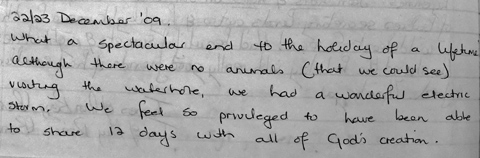 22/23 December '09.
What a spectacular end to the holiday of a lifetime
although there were no animals (that we could see)
visiting the waterhole, we had a wonderful electric
storm. We feel so privileged to have been able
to share 12 days with all of God's creation.